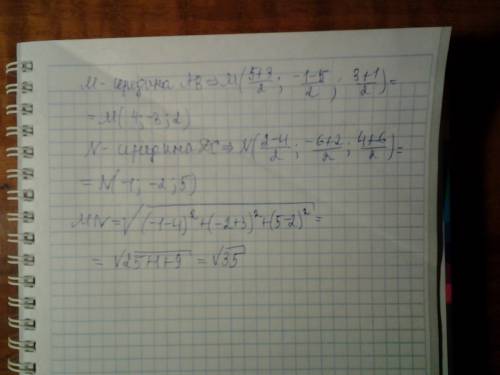 М - середина АВ ⇒ М(\frac{5+3}{2}; \frac{-1-5}{2}; \frac{3+1}{2}) =
= М(4; -3; 2)
N - середина DC ⇒ N(\frac{2-4}{2}; \frac{-6+2}{2}; \frac{4+6}{2}) =
= N(-1; -2; 5)
MN = \sqrt{(-1-4)^2+(-2+3)^2+(5-2)^2} =
= \sqrt{25+1+9} = \sqrt{35}